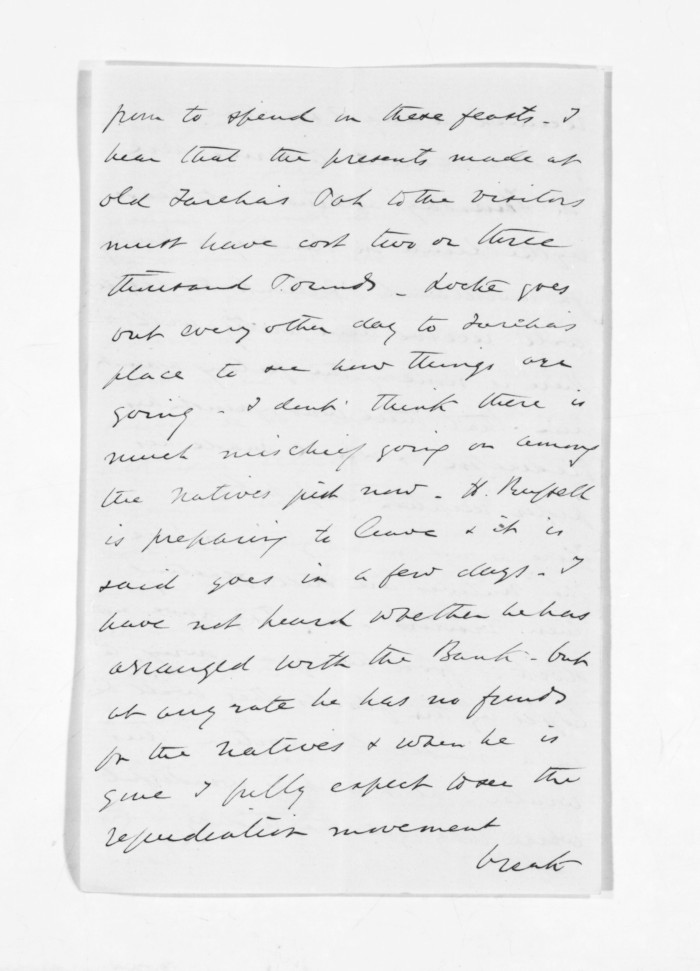 from to spend on these feasts - I
hear that the presents made at
old Tareha's Pah to the visitors
must have cost two or three
thousand Pounds - Locke goes
out every other day to Tareha's
place to see how things are
going - I dont think there is
much mischief going on among
the natives just now - H. Russell
is preparing to leave & it is
said goes in a few days - I
have not heard whether he has
arranged with the Bank - but
at any rate he has no funds
for the natives & when he is
gone I fully expect to see the
repudiation movement
break